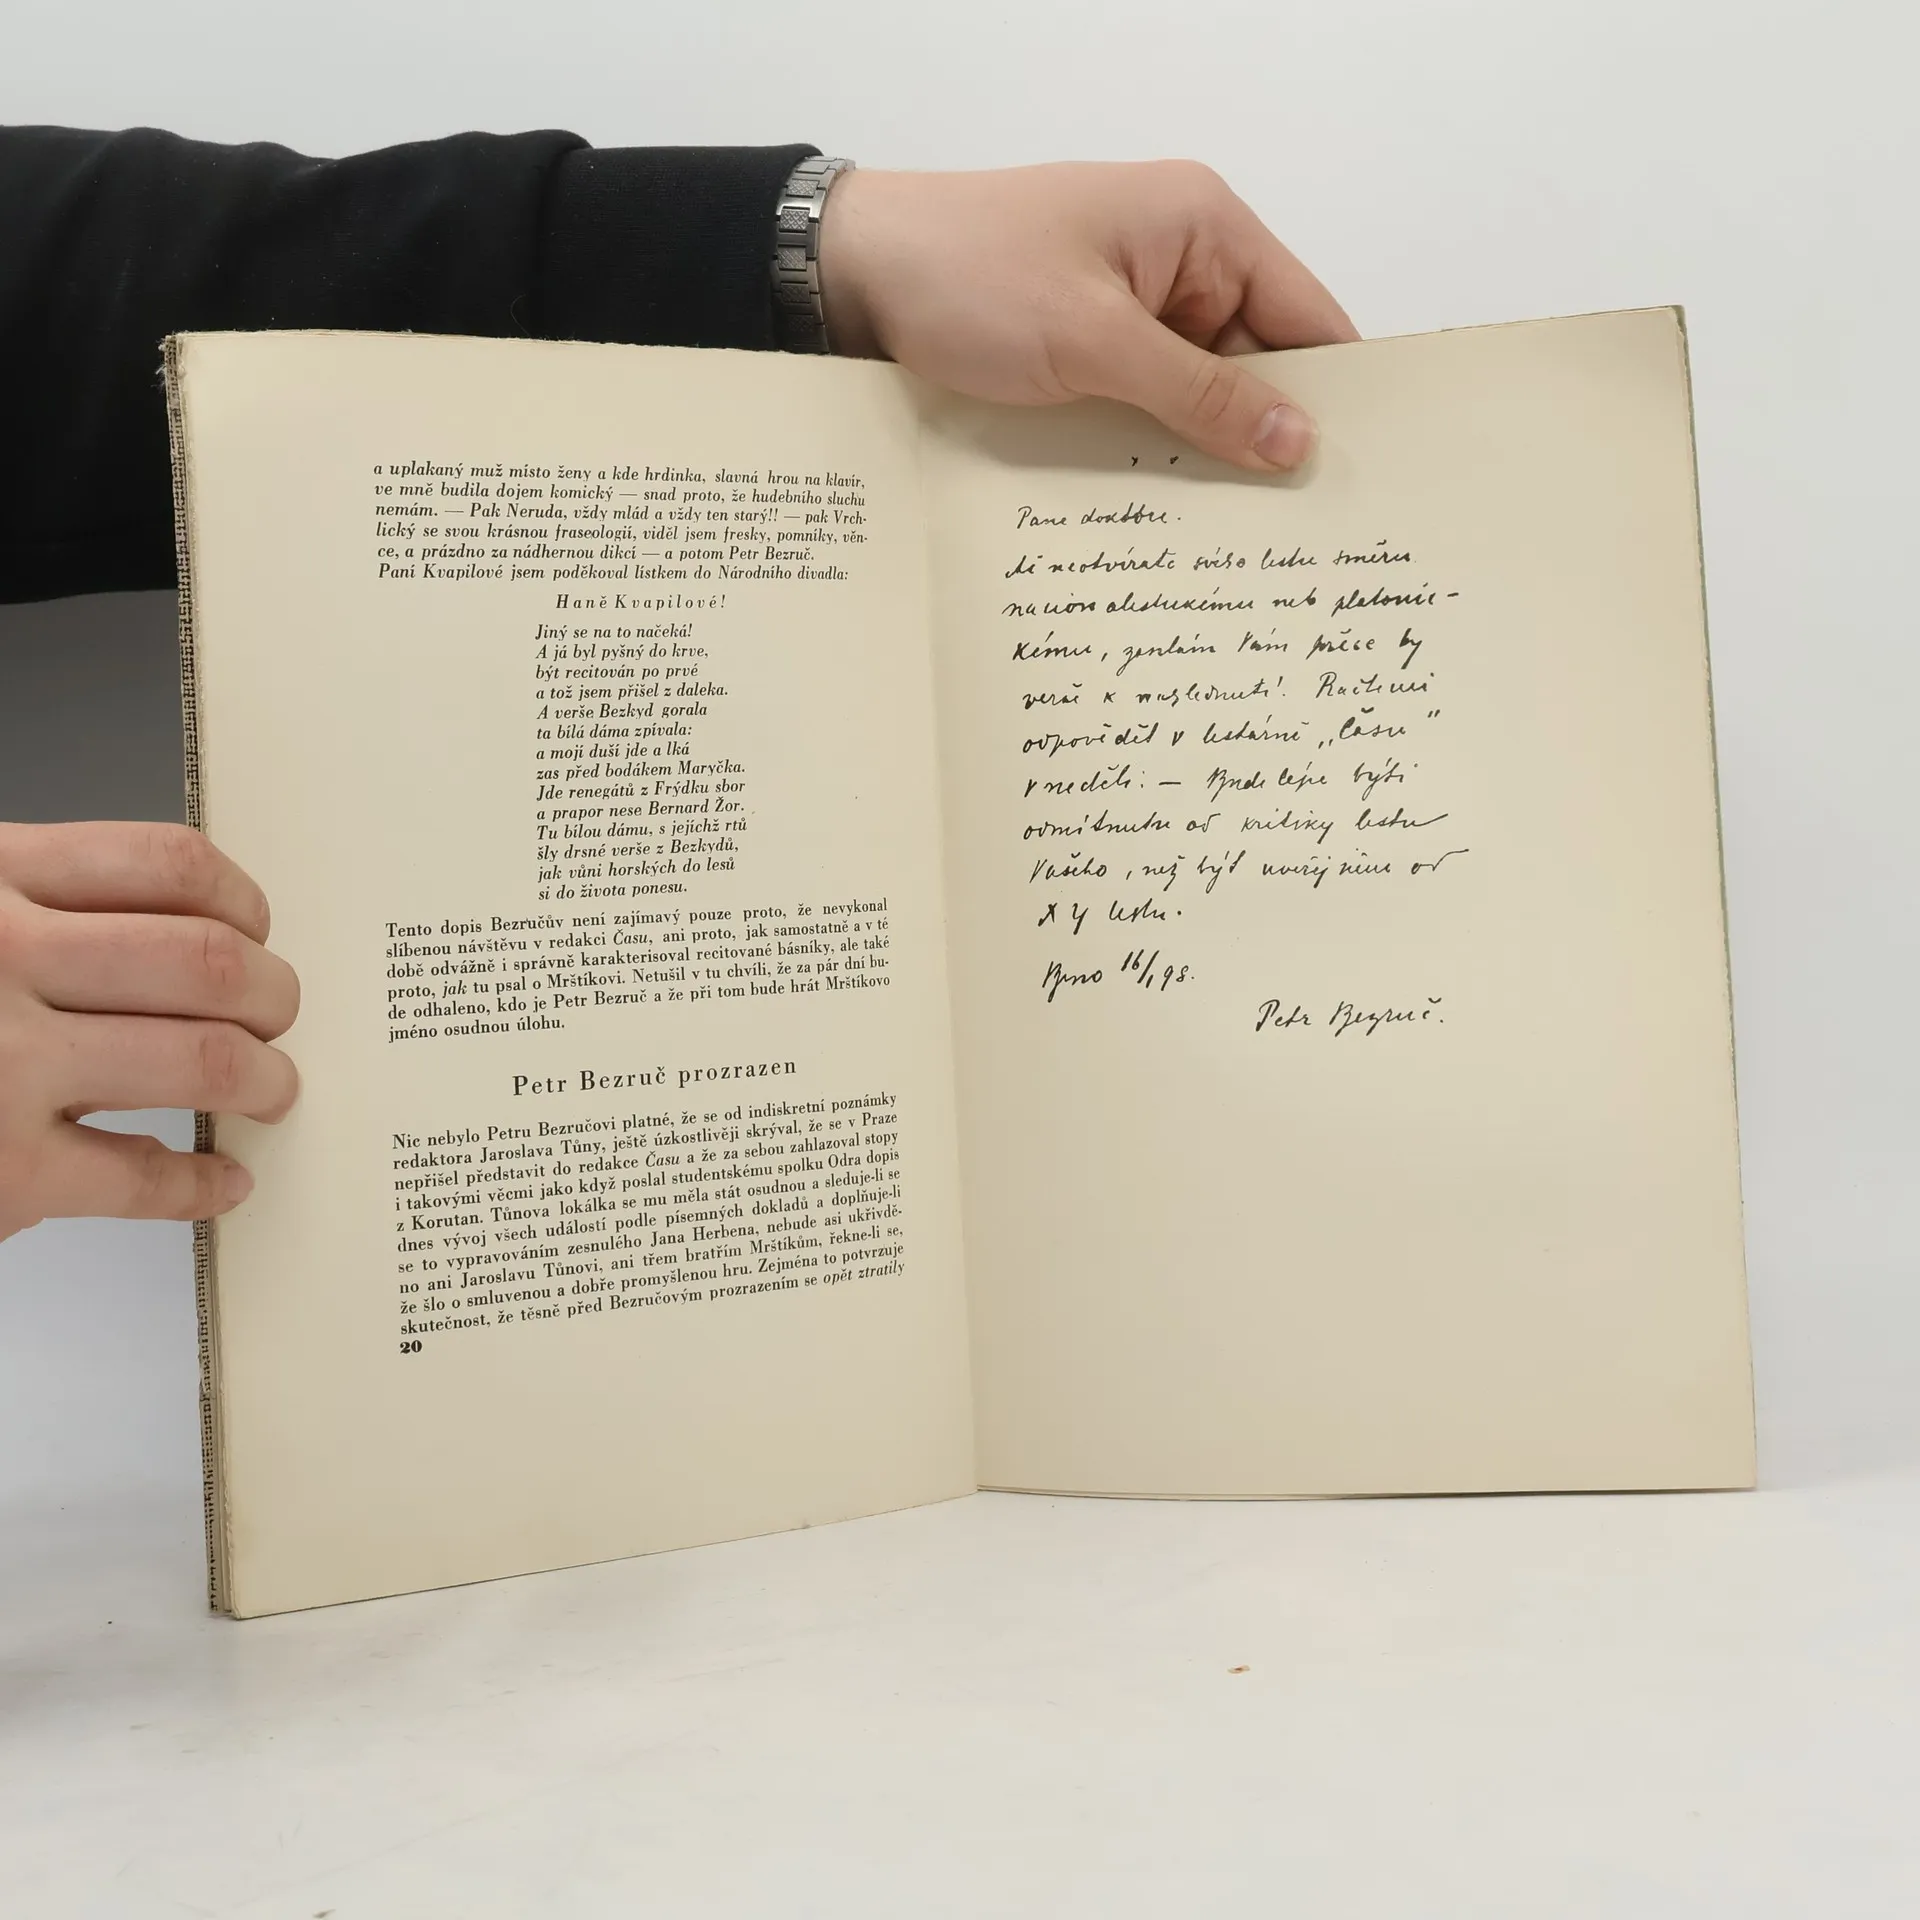 a uplakaný muž místo ženy a kde hrdinka, slavná hrou na klavír,
ve mně budila dojem komický — snad proto, že hudebního sluchu
nemám. — Pak Neruda, vždy mlád a vždy ten starý!! — pak Vrch-
lický se svou krásnou fraseologií, viděl jsem fresky, pomníky, věn-
ce, a prázdno za nádhernou dikcí — a potom Petr Bezruč.
Paní Kvapilové jsem poděkoval lístkem do Národního divadla:
Haně Kvapilové!
Jiný se na to načeká!
A já byl pyšný do krve,
být recitován po prvé
a tož jsem přišel z daleka.
A verše Bezkyd gorala
ta bílá dáma zpívala:
a mojí duší jde a lká
zas před bodákem Maryčka.
Jde renegátů z Frýdku sbor
a prapor nese Bernard Žor.
Tu bílou dámu, s jejíchž rtů
šly drsné verše z Bezkydů,
jak vůni horských do lesů
si do života ponesu.
Tento dopis Bezručův není zajímavý pouze proto, že nevykonal
slíbenou návštěvu v redakci Času, ani proto, jak samostatně a v té
době odvážně i správně karakterisoval recitované básníky, ale také
proto, jak tu psal o Mrštíkovi. Netušil v tu chvíli, že za pár dní bu-
de odhaleno, kdo je Petr Bezruč a že při tom bude hrát Mrštíkovo
jméno osudnou úlohu.
Petr Bezruč prozrazen
Nic nebylo Petru Bezručovi platné, že se od indiskretní poznámky
redaktora Jaroslava Tůny, ještě úzkostlivěji skrýval, že se v Praze
nepřišel představit do redakce Času a že za sebou zahlazoval stopy
i takovými věcmi jako když poslal studentskému spolku Odra dopis
z Korutan. Tůnova lokálka se mu měla stát osudnou a sleduje-li se
dnes vývoj všech událostí podle písemných dokladů a doplňuje-li
se to vypravováním zesnulého Jana Herbena, nebude asi ukřivdě-
no ani Jaroslavu Tůnovi, ani třem bratřím Mrštíkům, řekne-li se,
že šlo o smluvenou a dobře promyšlenou hru. Zejména to potvrzuje
skutečnost, že těsně před Bezručovým prozrazením se opět ztratily
20
Pane doktore.
neotvíráte svého listu směru
nacionalistickému neb platonic-
kému, zasílám Vám přece ty
verše k nahlédnutí. Račte mi
odpovědět v listárně „Času"
v neděli: — Bude lépe býti
odmítnutu od kritiky listu
Vašeho, než být uveřejněnu od
X Y listu.
Brno 16/1 98.
Petr Bezruč.